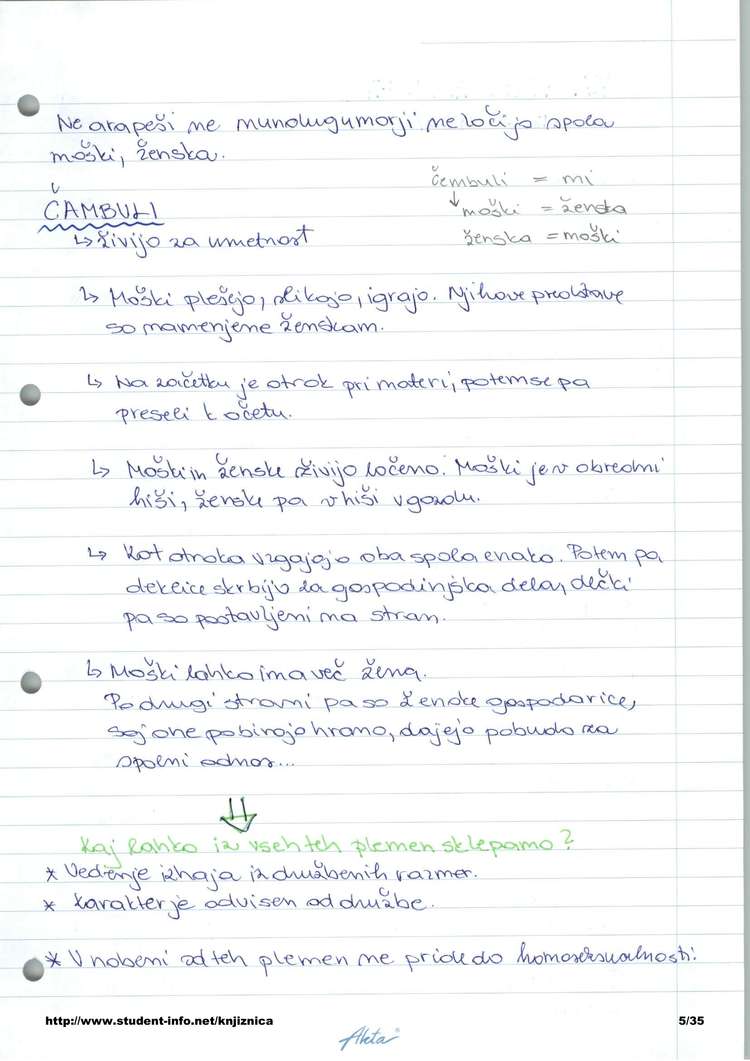 Ne arapeši ne mundugumorji ne ločijo spola
moški, ženska.
čembuli = mi
ČAMBULI
↳ živijo za umetnost
↓ moški = ženska
ženska = moški
↳ Moški plešejo, slikajo, igrajo. Njihove predstave
so namenjene ženskam.
↳ Na začetku je otrok pri materi, potem se pa
preseli k očetu.
↳ Moški in ženske živijo ločeno. Moški je v obredni
hiši, ženske pa v hiši v gozdu.
↳ Kot otroka vzgajajo oba spola enako. Potem pa
deklice skrbijo za gospodinjska dela, dečki
pa so postavljeni na stran.
↳ Moški lahko ima več žena.
Po drugi strani pa so ženske gospodarice,
saj one pobirajo hrano, dajejo pobudo za
spolni odnos...
⇓
Kaj lahko iz vseh teh plemen sklepamo?
* Vedenje izhaja iz družbenih razmer.
* Karakter je odvisen od družbe.
* V nobeni od teh plemen ne pride do homoseksualnosti!
http://www.student-info.net/knjiznica 5/35
Akta